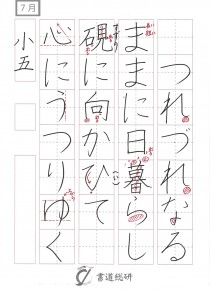 7月
つれづれなる
ままに日暮らし
硯に向かひて
心にうつりゆく
小五
書道総研